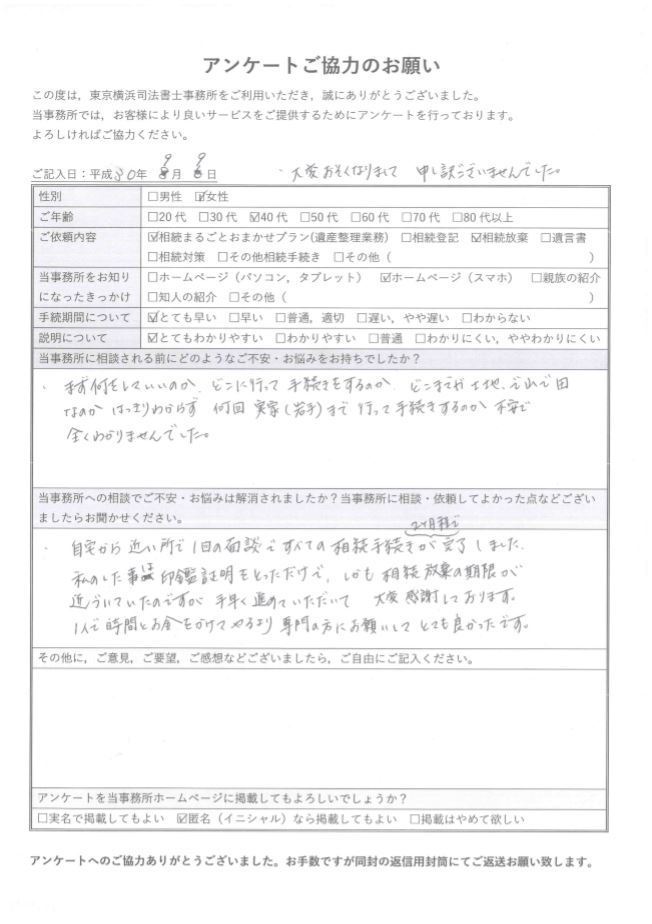 アンケートご協力のお願い
この度は，東京横浜司法書士事務所をご利用いただき，誠にありがとうございました。
当事務所では，お客様により良いサービスをご提供するためにアンケートを行っております。
よろしければご協力ください。
ご記入日：平成30年 9月 9日
・大変おそくなりまして 申し訳ございませんでした。
性別 □男性 ☑女性
ご年齢 □20代 □30代 ☑40代 □50代 □60代 □70代 □80代以上
ご依頼内容 ☑相続まるごとおまかせプラン(遺産整理業務) □相続登記 ☑相続放棄 □遺言書
□相続対策 □その他相続手続き □その他（ ）
当事務所をお知り □ホームページ（パソコン，タブレット） ☑ホームページ（スマホ） □親族の紹介
になったきっかけ □知人の紹介 □その他（ ）
手続期間について ☑とても早い □早い □普通，適切 □遅い，やや遅い □わからない
説明について ☑とてもわかりやすい □わかりやすい □普通 □わかりにくい，ややわかりにくい
当事務所に相談される前にどのようなご不安・お悩みをお持ちでしたか？
・まず何をしていいのか、どこに行って手続きをするのか、どこまでが土地、で山で田
なのか はっきりわからず 何回 実家（岩手）まで 行って手続きするのか 不安で
全くわかりませんでした。
当事務所への相談でご不安・お悩みは解消されましたか？当事務所に相談・依頼してよかった点などござい
ましたらお聞かせください。
2ヶ月程で
・自宅から 近い所で 1回の面談で すべての 相続手続きが 完了しました。
私のした事は 印鑑証明をとっただけで、しかも 相続放棄の期限が
近づいていたのですが 手早く進めていただいて 大変 感謝しております。
1人で 時間とお金をかけてやるより 専門の方にお願いして とても良かったです。
その他に，ご意見，ご要望，ご感想などございましたら，ご自由にご記入ください。
アンケートを当事務所ホームページに掲載してもよろしいでしょうか？
□実名で掲載してもよい ☑匿名（イニシャル）なら掲載してもよい □掲載はやめて欲しい
アンケートへのご協力ありがとうございました。お手数ですが同封の返信用封筒にてご返送お願い致します。